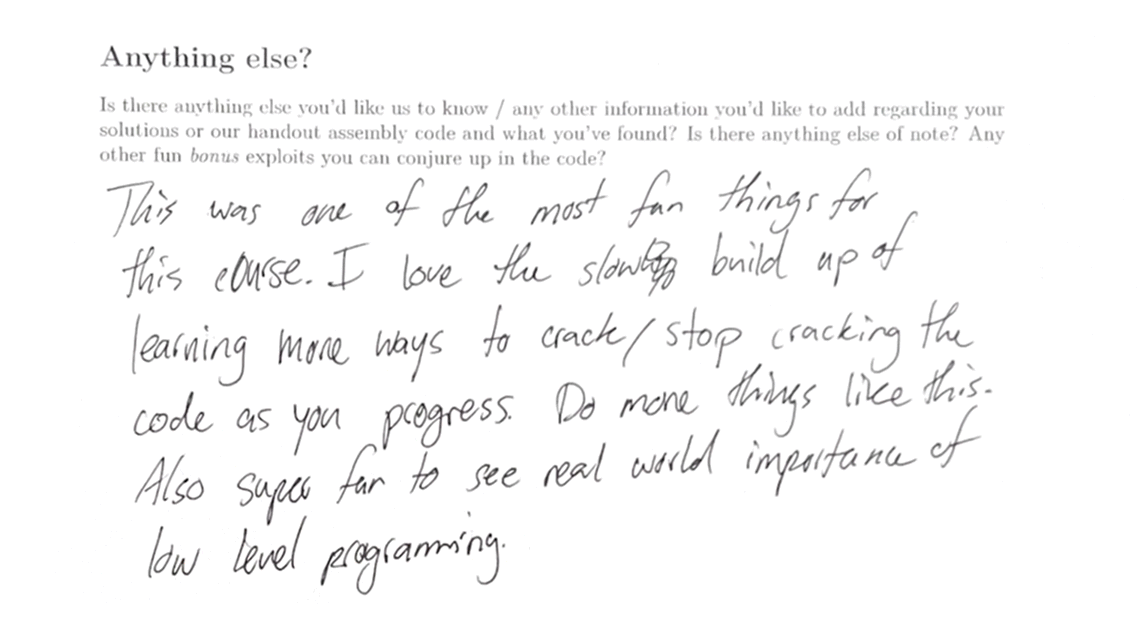 Anything else?
Is there anything else you'd like us to know / any other information you'd like to add regarding your
solutions or our handout assembly code and what you've found? Is there anything else of note? Any
other fun bonus exploits you can conjure up in the code?
This was one of the most fun things for
this course. I love the slow build up of
learning more ways to crack/stop cracking the
code as you progress. Do more things like this.
Also super fun to see real world importance of
low level programming.